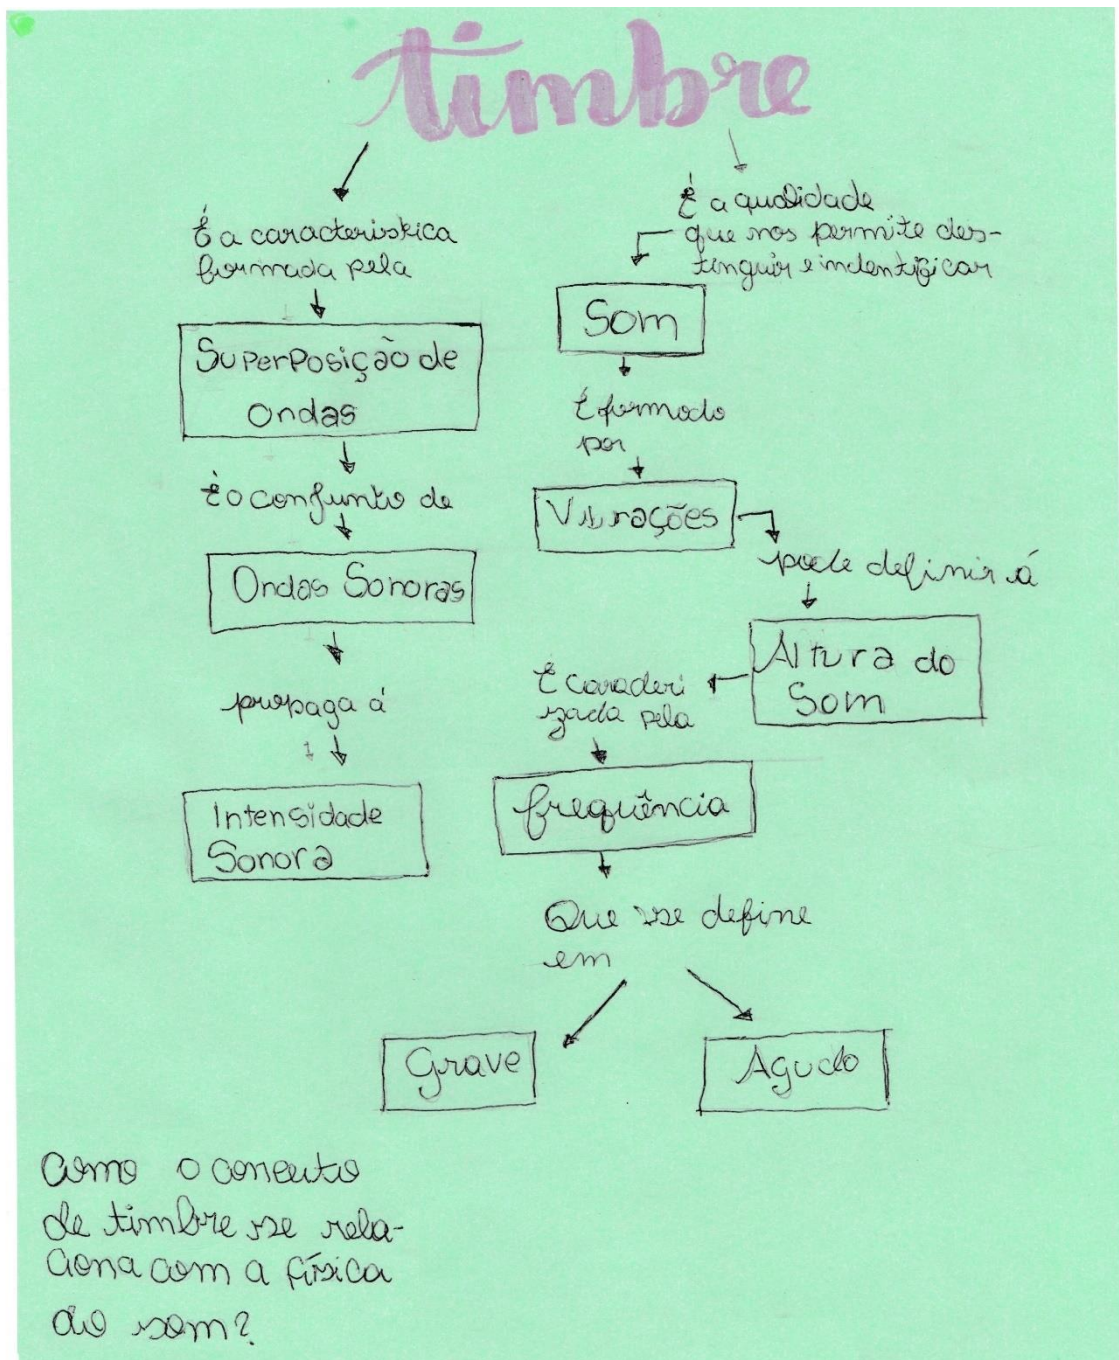 timbre
É a caracteristica
formada pela
Superposição de
ondas
É o conjunto de
Ondas Sonoras
propaga á
Intensidade
Sonora
É a qualidade
que nos permite des-
tinguir e indentificar
Som
É formado
por
Vibrações
pode definir á
Altura do
Som
É caracteri
zada pela
frequência
Que se define
em
Grave
Agudo
Como o conceito
de timbre se rela-
ciona com a física
do som?